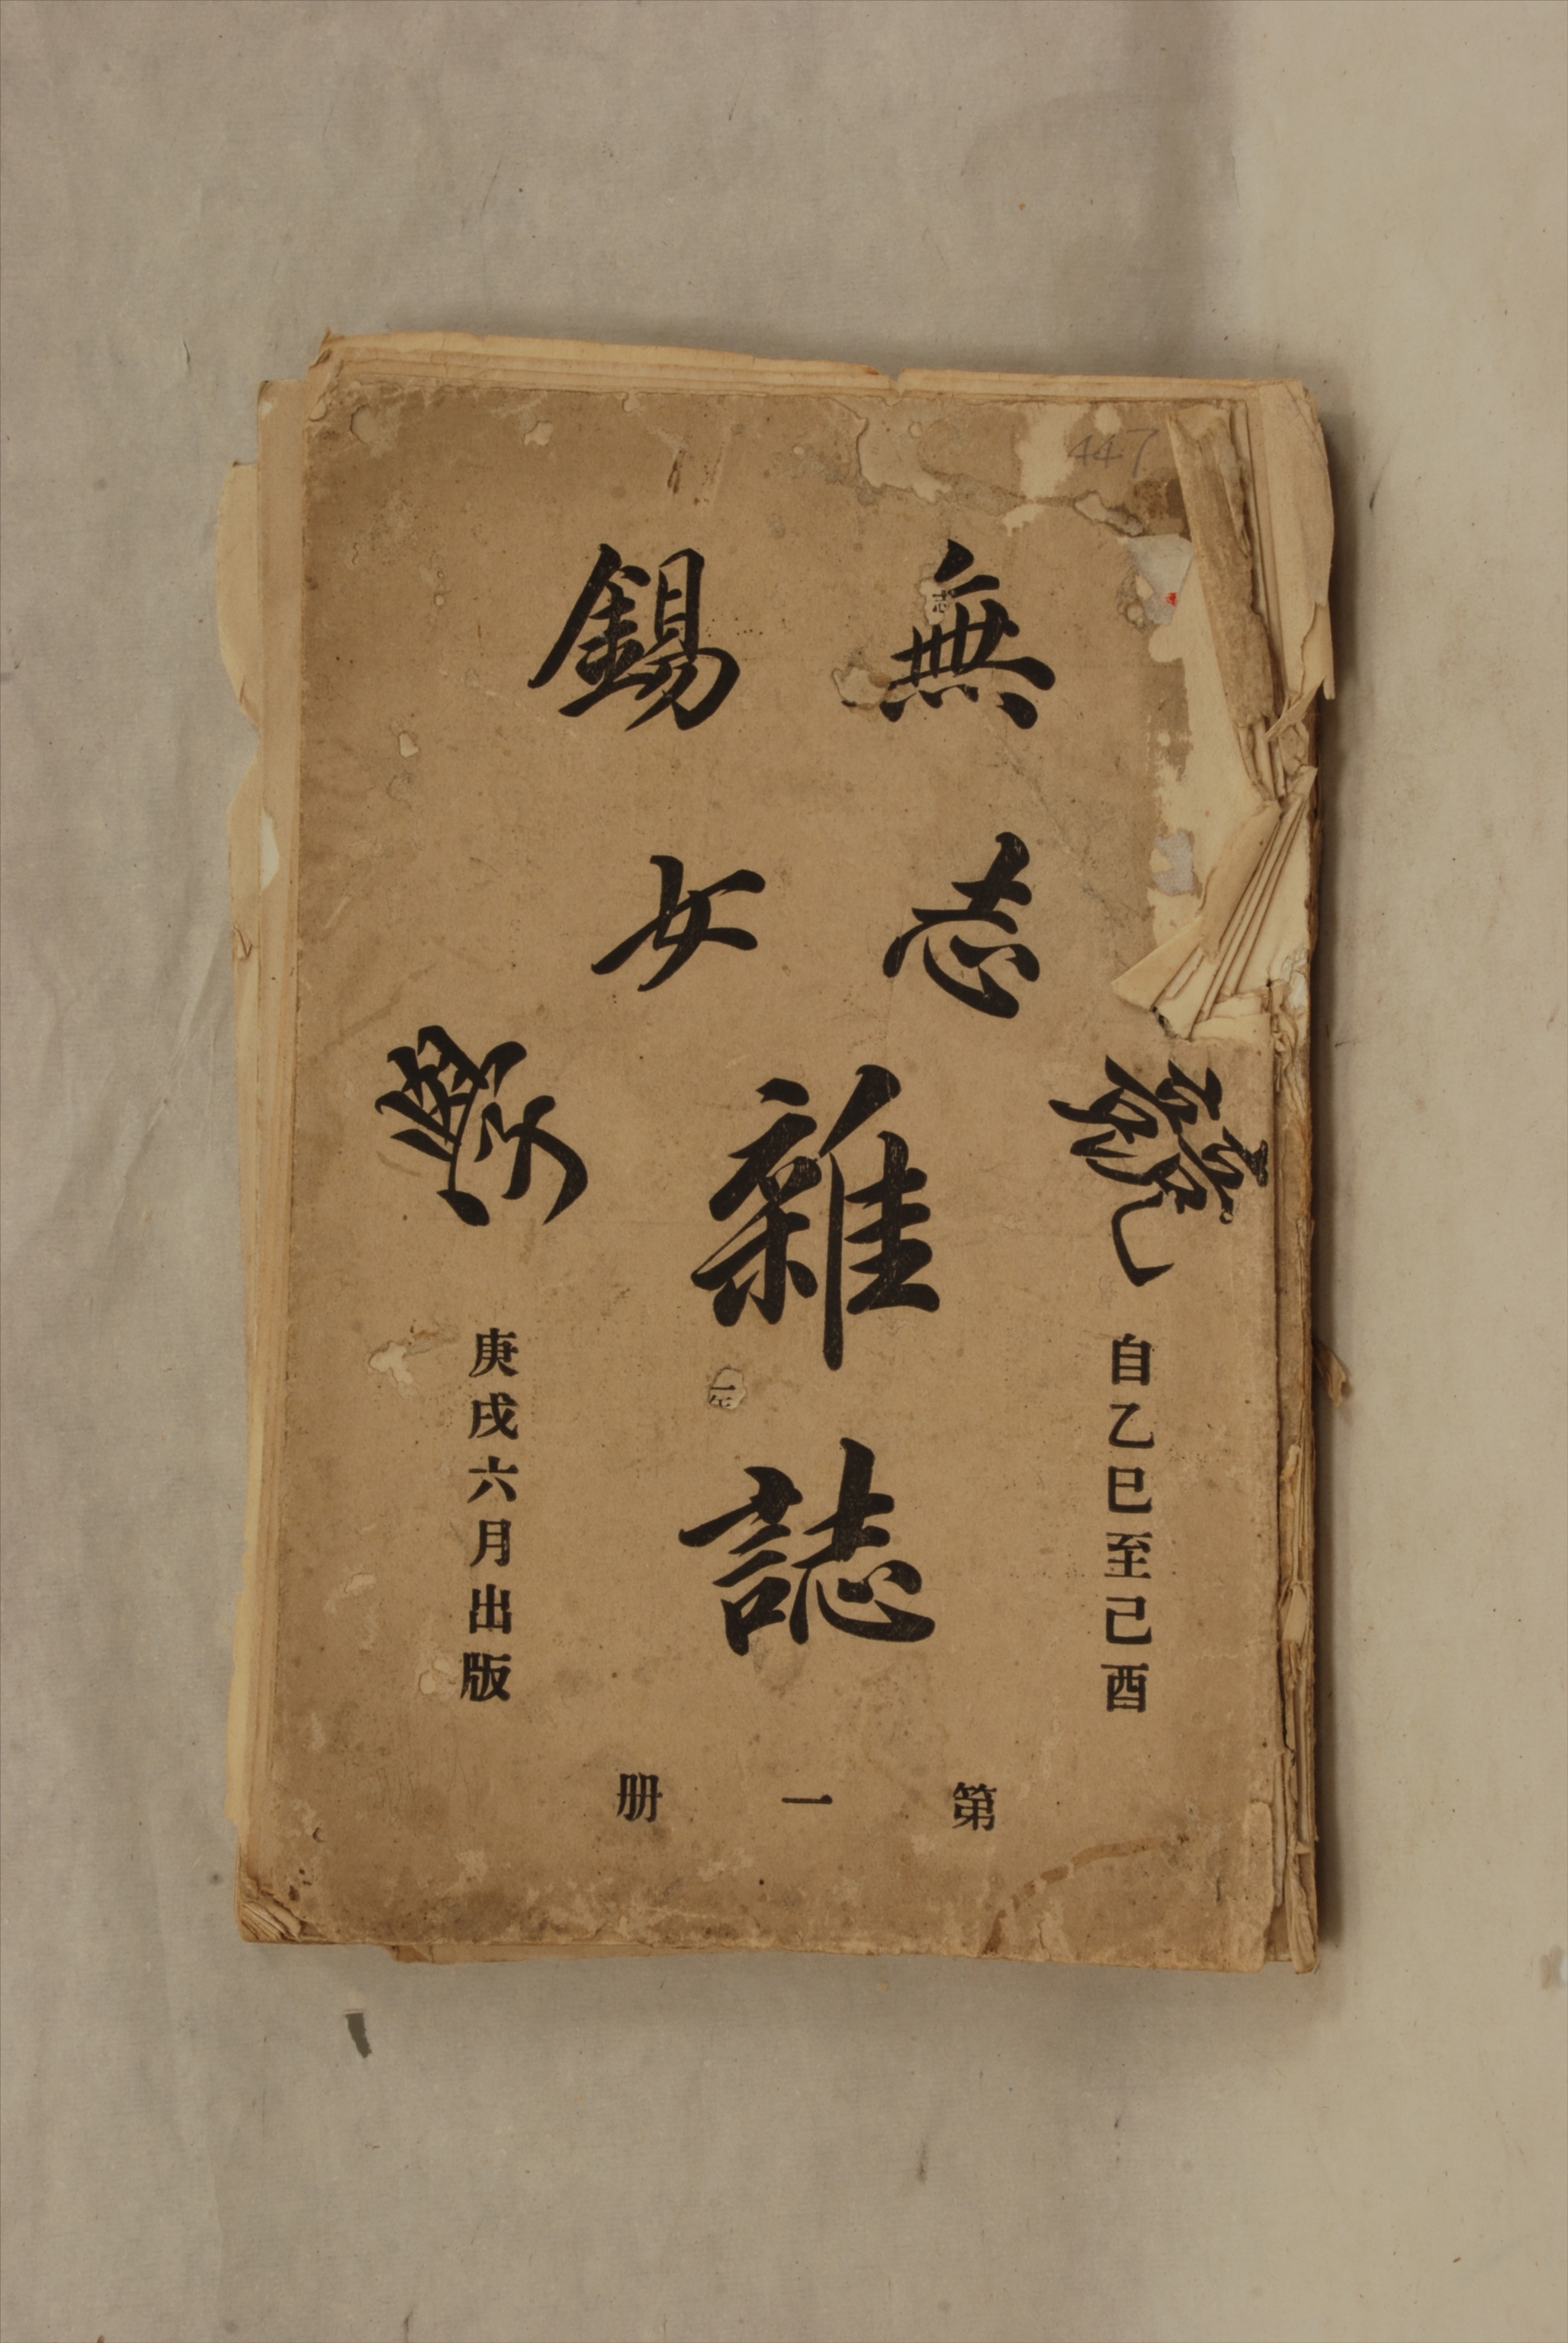 447
無錫
競志女學
雜誌
自乙巳至己酉
庚戌六月出版
第一册